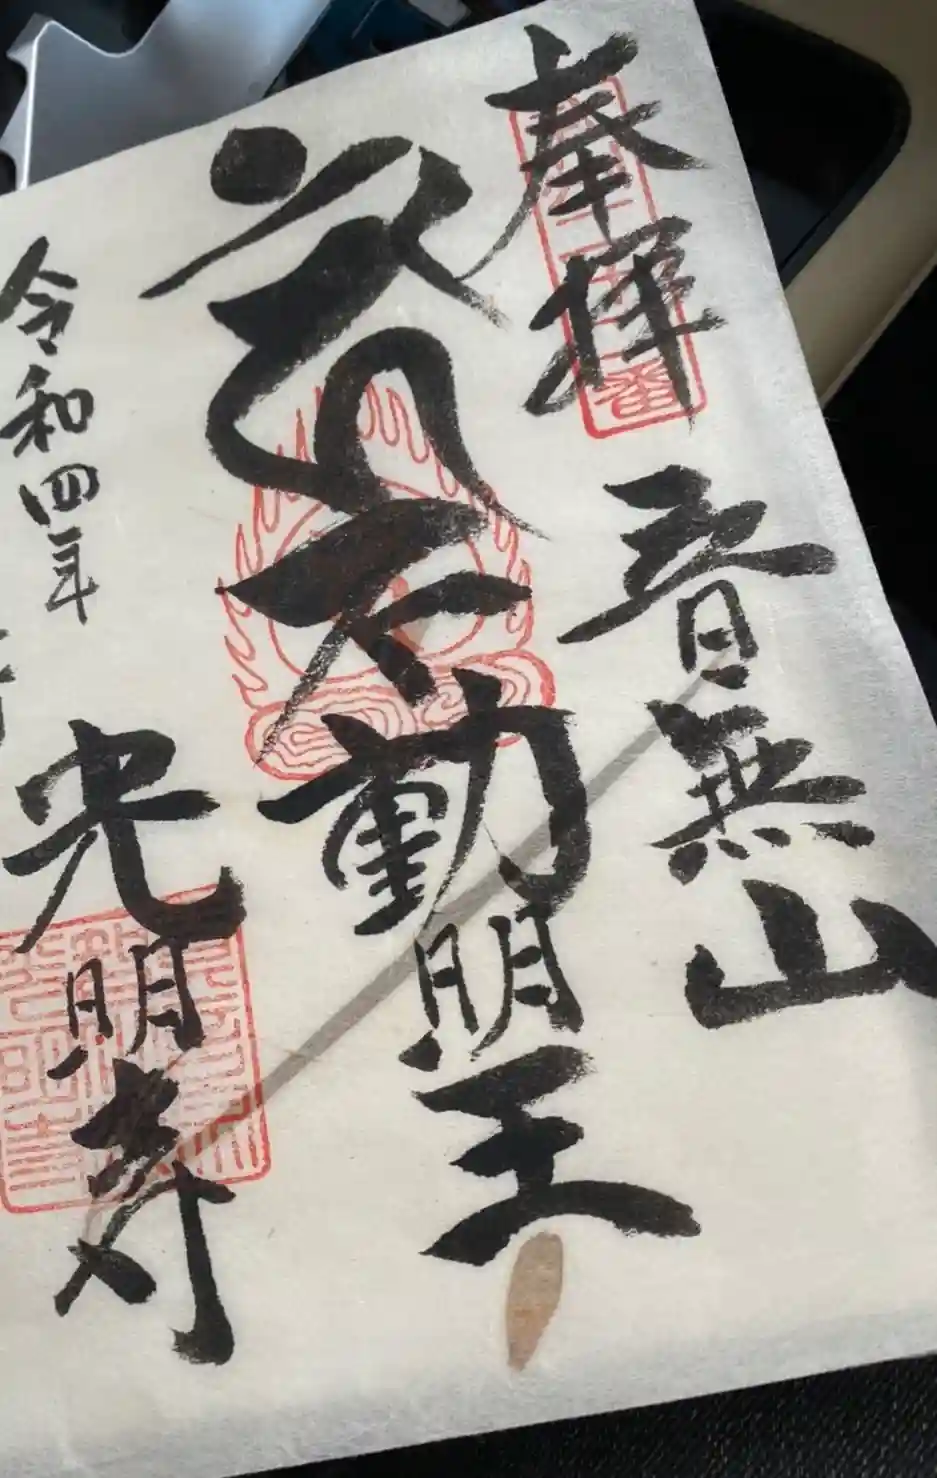 奉拝
音無山
不動明王
令和四年
光明寺